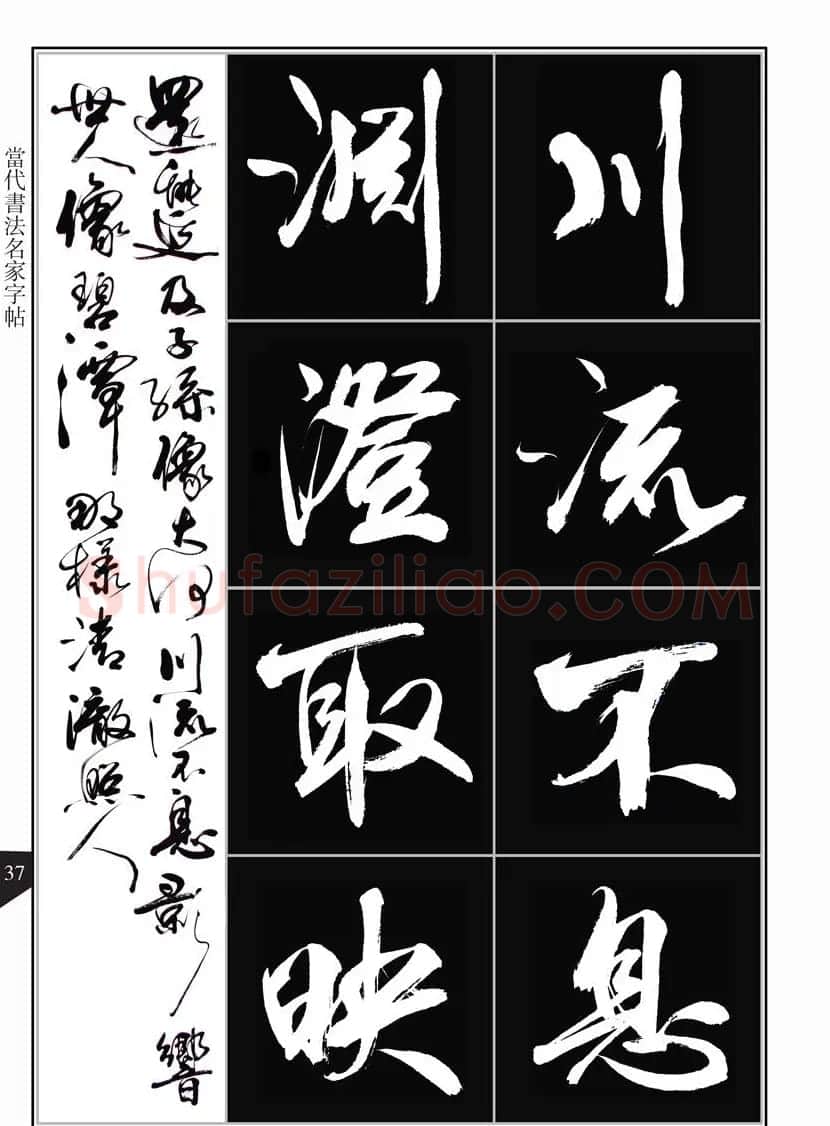 川流不息
淵澄取映
還能延及子孫像大河川流不息影響
世人像碧潭那樣清澈照人
當代書法名家字帖
37
Shufaziliao.COM